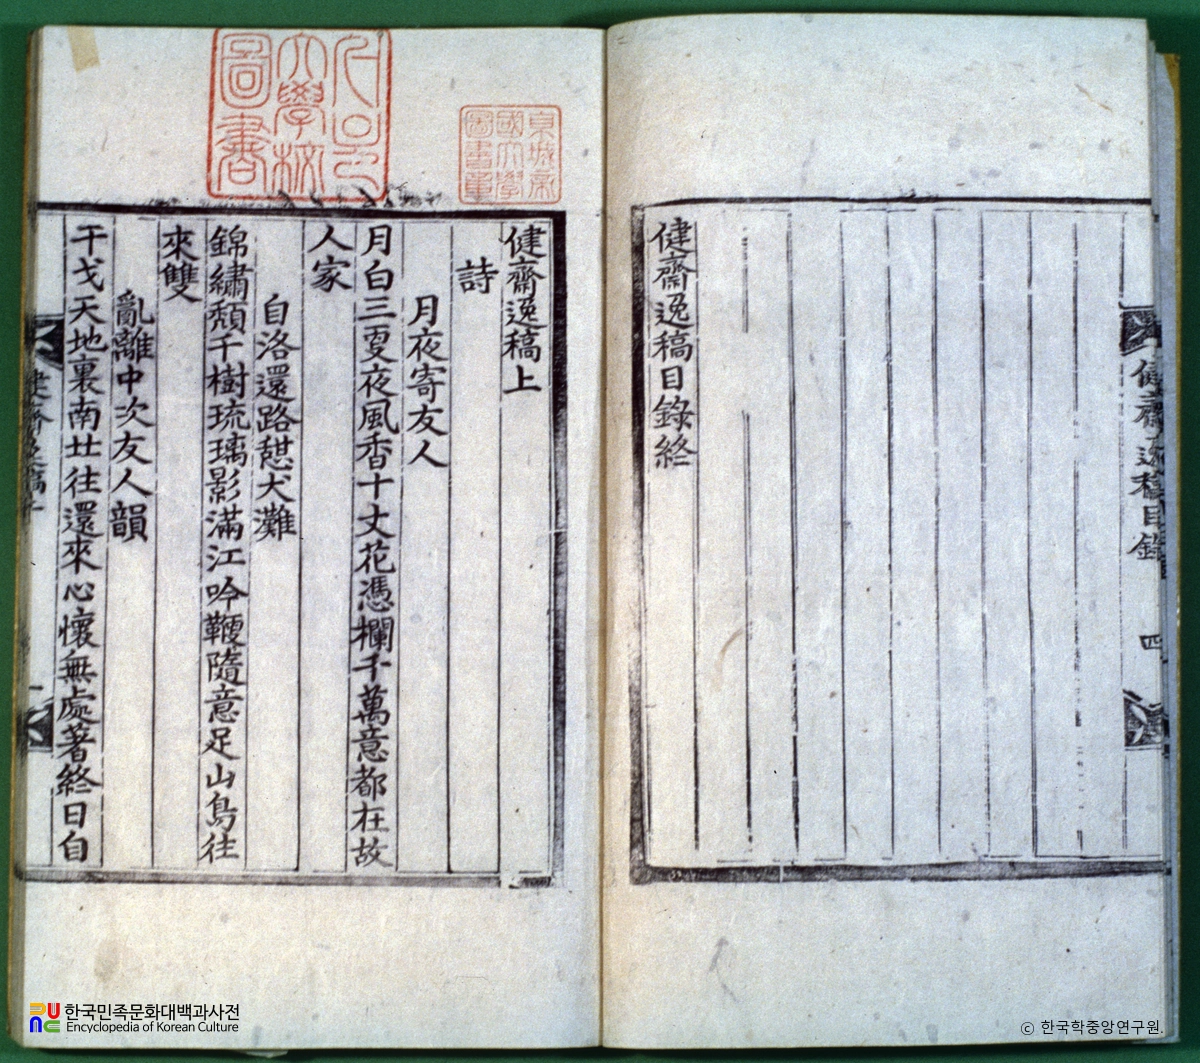 健齋逸稿目錄 四
健齋逸稿目錄終
京城帝
國大學
圖書章
서울
大學校
圖書
健齋逸稿上
詩
月夜寄友人
月白三更夜風香十丈花憑欄千萬意都在故
人家
自洛還路憇犬灘
錦繡頹千樹琉璃影滿江吟鞭隨意足山鳥往
來雙
亂離中次友人韻
干戈天地裏南北往還來心懷無處著終日自
健齋逸稿上
한국민족문화대백과사전
Encyclopedia of Korean Culture
© 한국학중앙연구원.